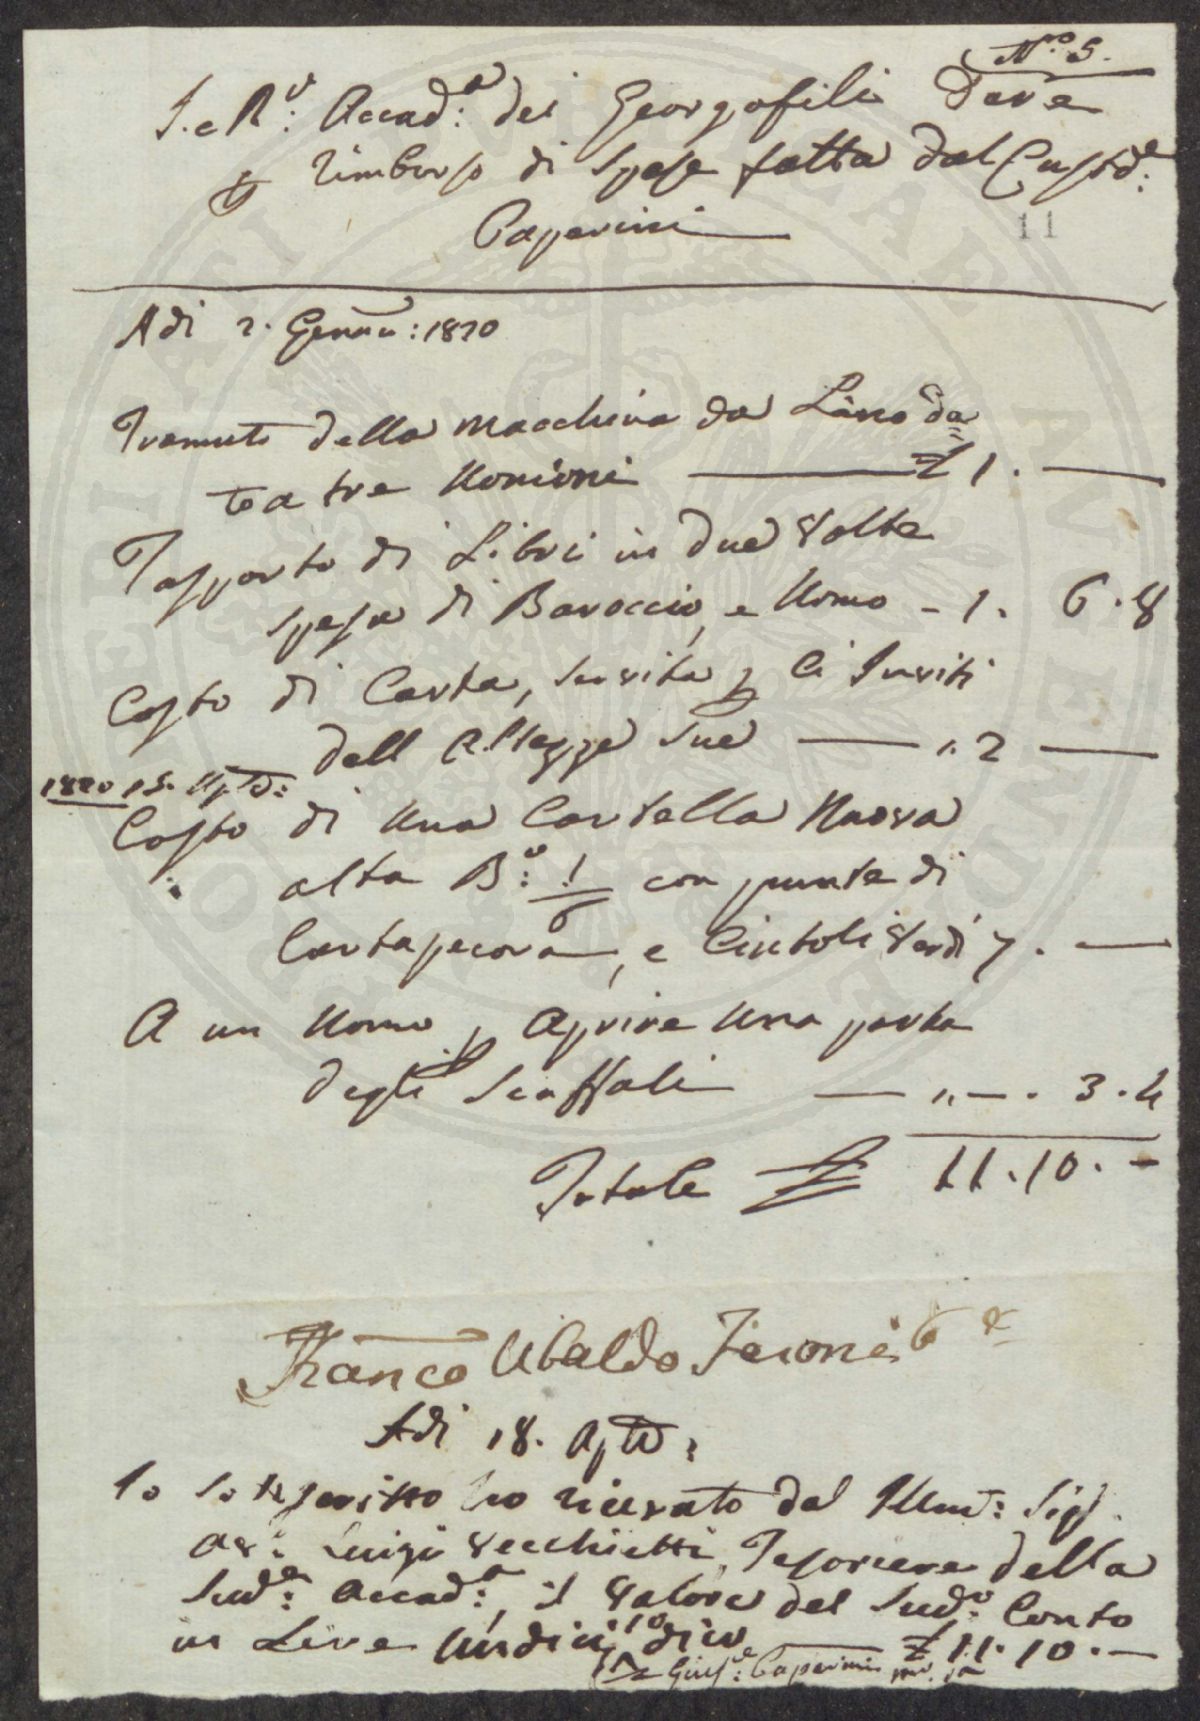 N.ro 5.
I. e R.e: Accad:a dei Georgofili Deve
p rimborso di Spese fatta dal Custd:e
Paperini
11
A di 2. Genna: 1820
Tramuto della Macchina da Lino da
ta a tre Uomini ₤ 1. —
Tasporto di Libri in due Volte
spesa di Baroccio, e Uomo - 1. 6. 8
Costo di Carta, Servita p li Inviti
dell Altezze Sue — " 2 —
1820 15. Agto:
Costo di Una Cartella Nuova
alta B:o 1/6 con punte di
Cartapecora, e Cintoli Verdi 7. —
A un Uomo p Aprire Una porta
degli Scaffali — " — . 3. 4
Totale ₤ 11. 10. -
Franco Ubaldo
Adi 18. Agto:
Io Sottoscritto ho ricevuto dal Illmo: Sigr.
Av: Luigi Vecchietti, Tesoriere della
Sud:a Accad:a, il Valore del Sud:o Conto
in Lire Undici, 10 dico ₤ 11. 10. —
Gius:e Paperini mo. pa